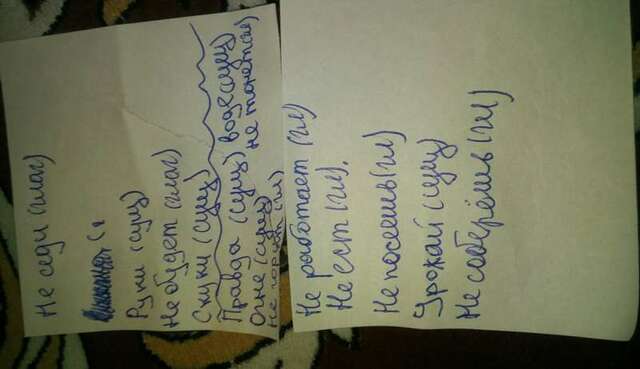 Не сиди (глаг)
Руки (сущ)
Не будет (глаг)
Скуки (сущ)
Правда (сущ) воде (сущ)
Огне (сущ) не тонет (гл)
не горит (гл)
Не работает (гл)
Не ест (гл).
Не посеешь (гл)
Урожай (сущ)
Не соберёшь (гл)